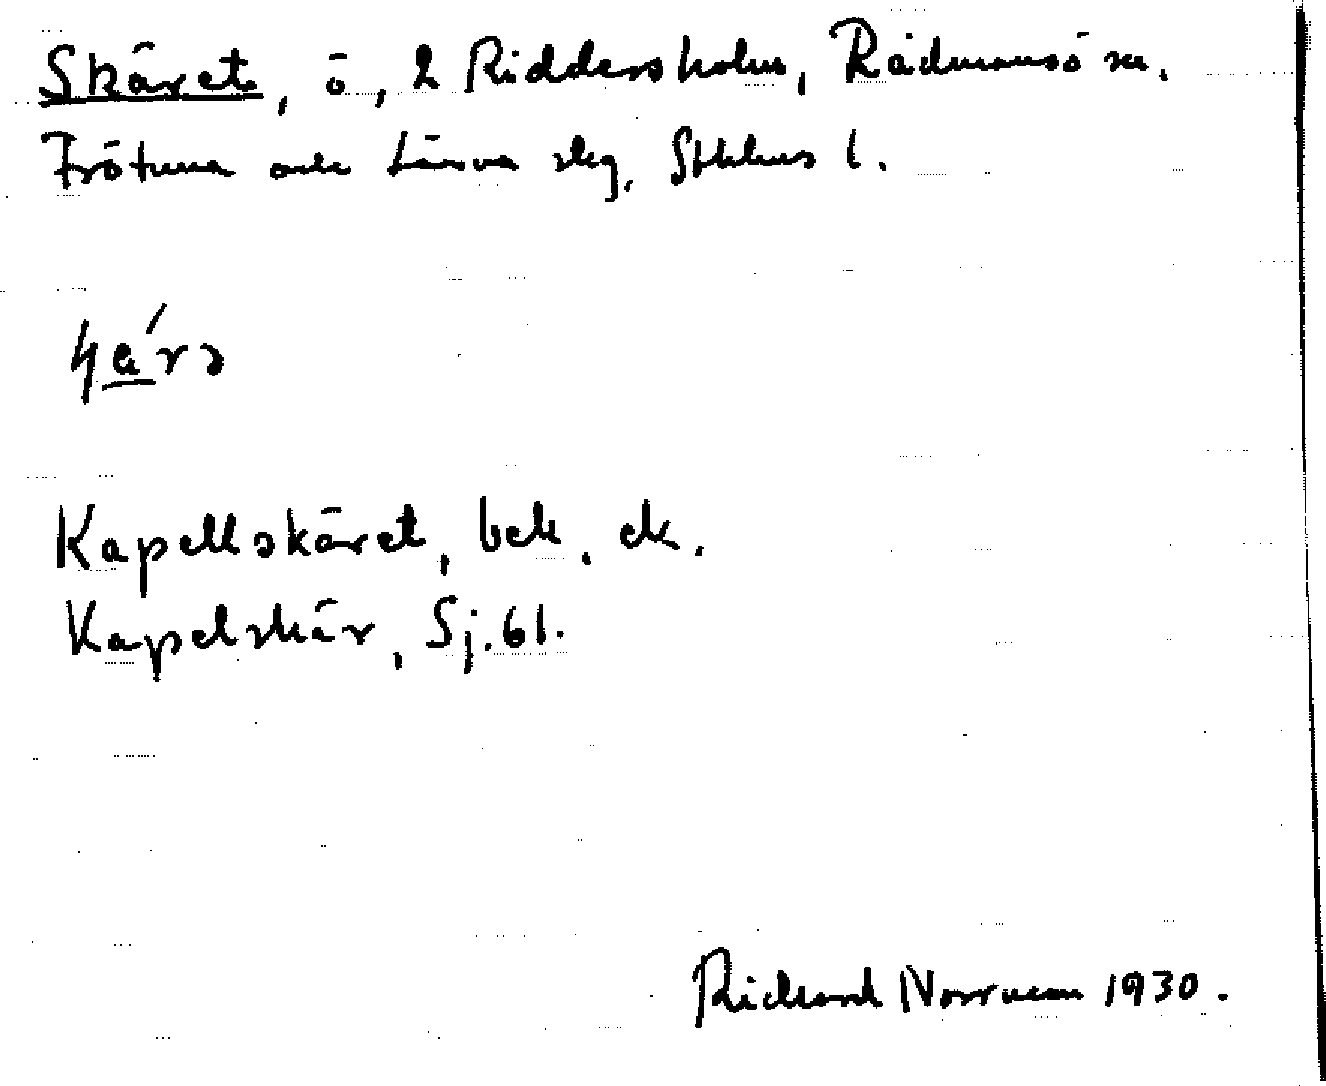 Skäret, ö, 2 Riddersholm, Rådmansö sn,
Frötuna och Länna slg, Sthlms l.
Kapellskäret, bek. ek.
Kapelskär, Sj.61.
Richard Norrman 1930.